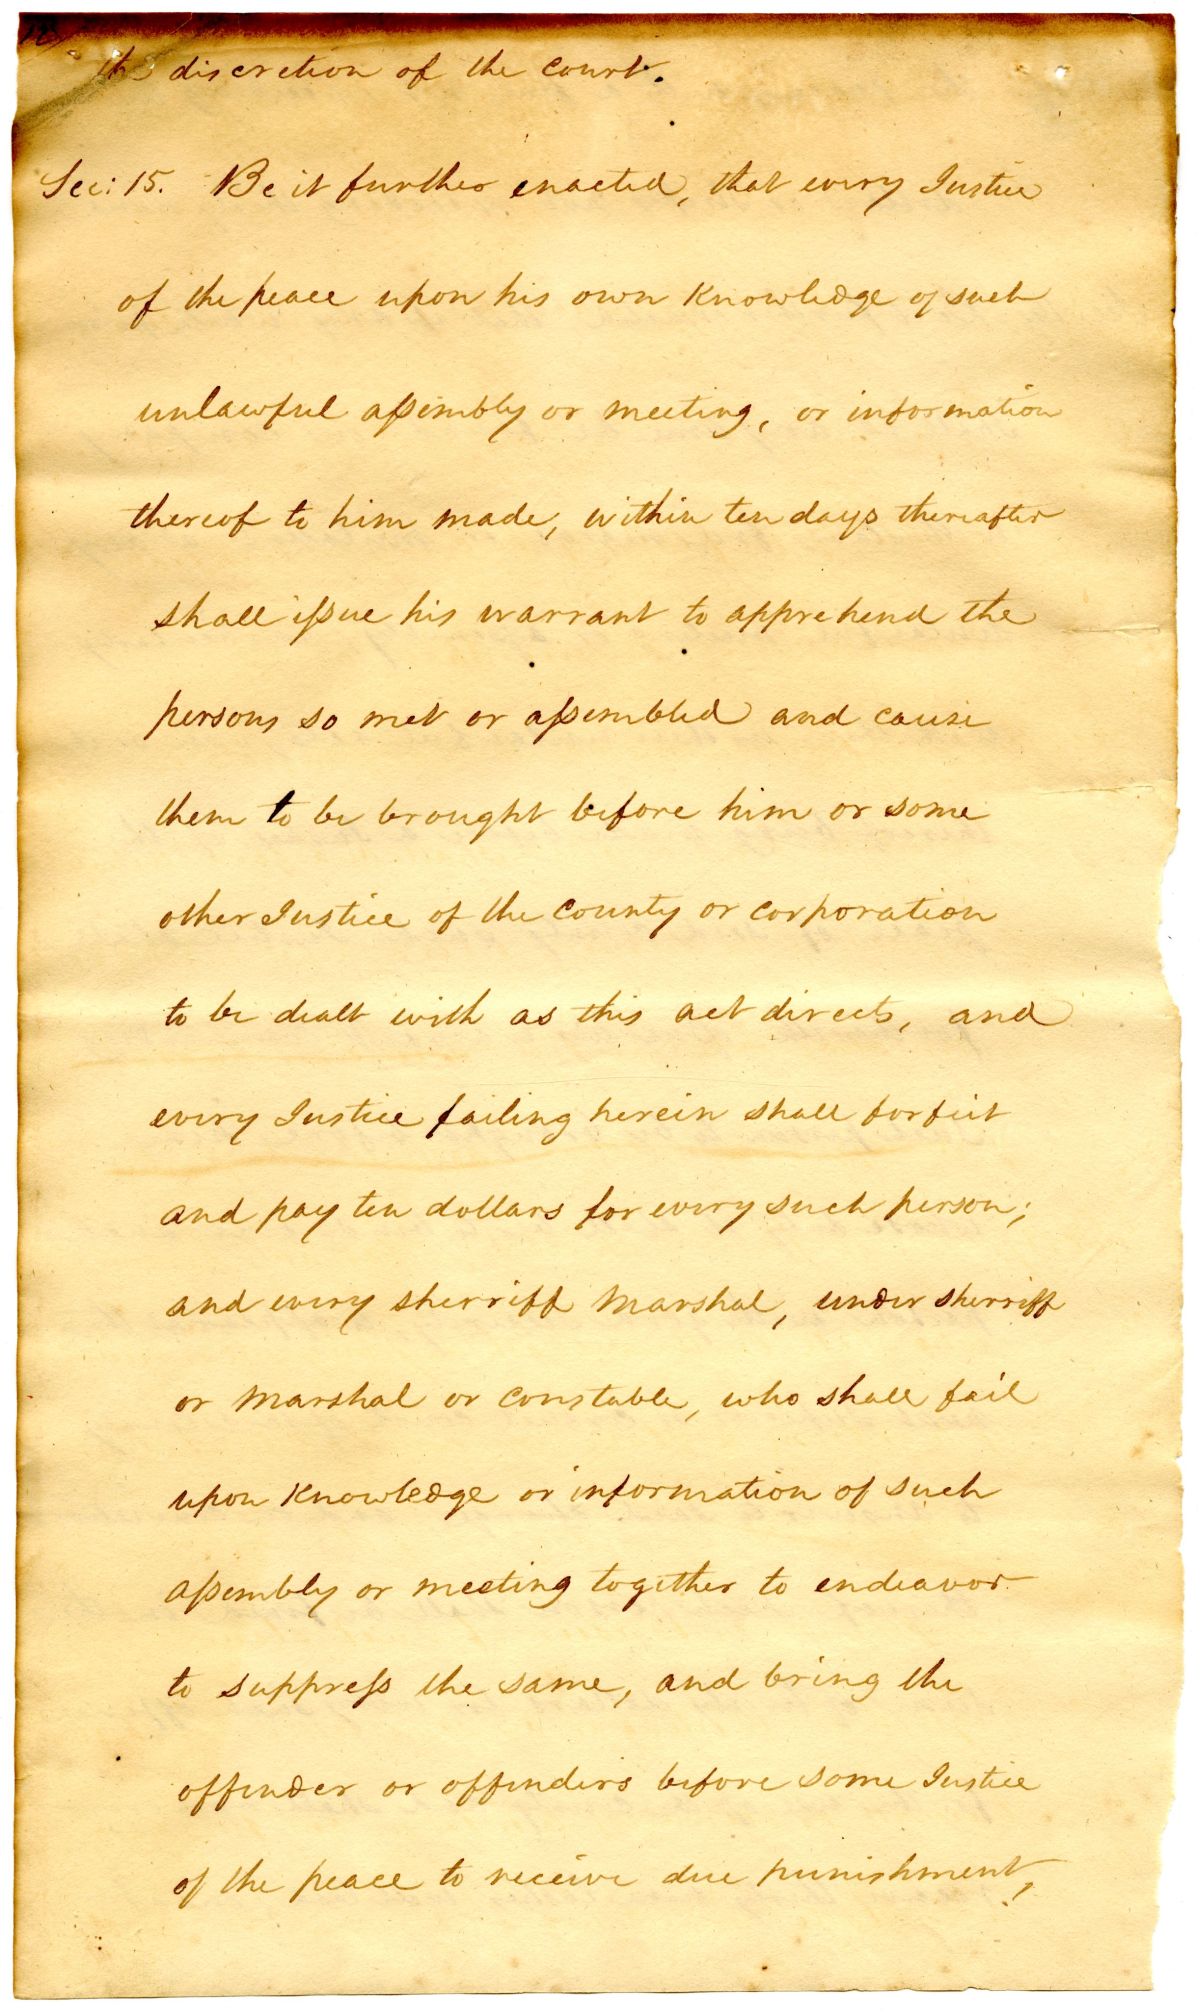 the discretion of the court.
Sec: 15. Be it further enacted, that every Justice
of the peace upon his own knowledge of such
unlawful aſsembly or meeting, or information
thereof to him made, within ten days thereafter
shall iſsue his warrant to apprehend the
persons so met or aſsembled and cause
them to be brought before him or some
other Justice of the county or corporation
to be dealt with as this act directs, and
every Justice failing herein shall forfeit
and pay ten dollars for every such person;
and every sherriff Marshal, under sherriff
or Marshal or constable, who shall fail
upon knowledge or information of such
aſsembly or meeting together to endeavor
to suppreſs the same, and bring the
offender or offenders before some Justice
of the peace to receive due punishment,